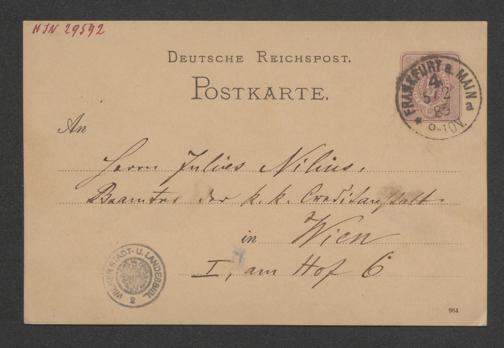 HJN 29592
DEUTSCHE REICHSPOST.
POSTKARTE.
FRANKFURT a. MAIN
4
a
An
Herrn Julius Nilius,
Beamter der k. k. Creditanstalt.
in Wien
I, am Hof 6
WIENER STADT- U. LANDESBIBL.
2
984